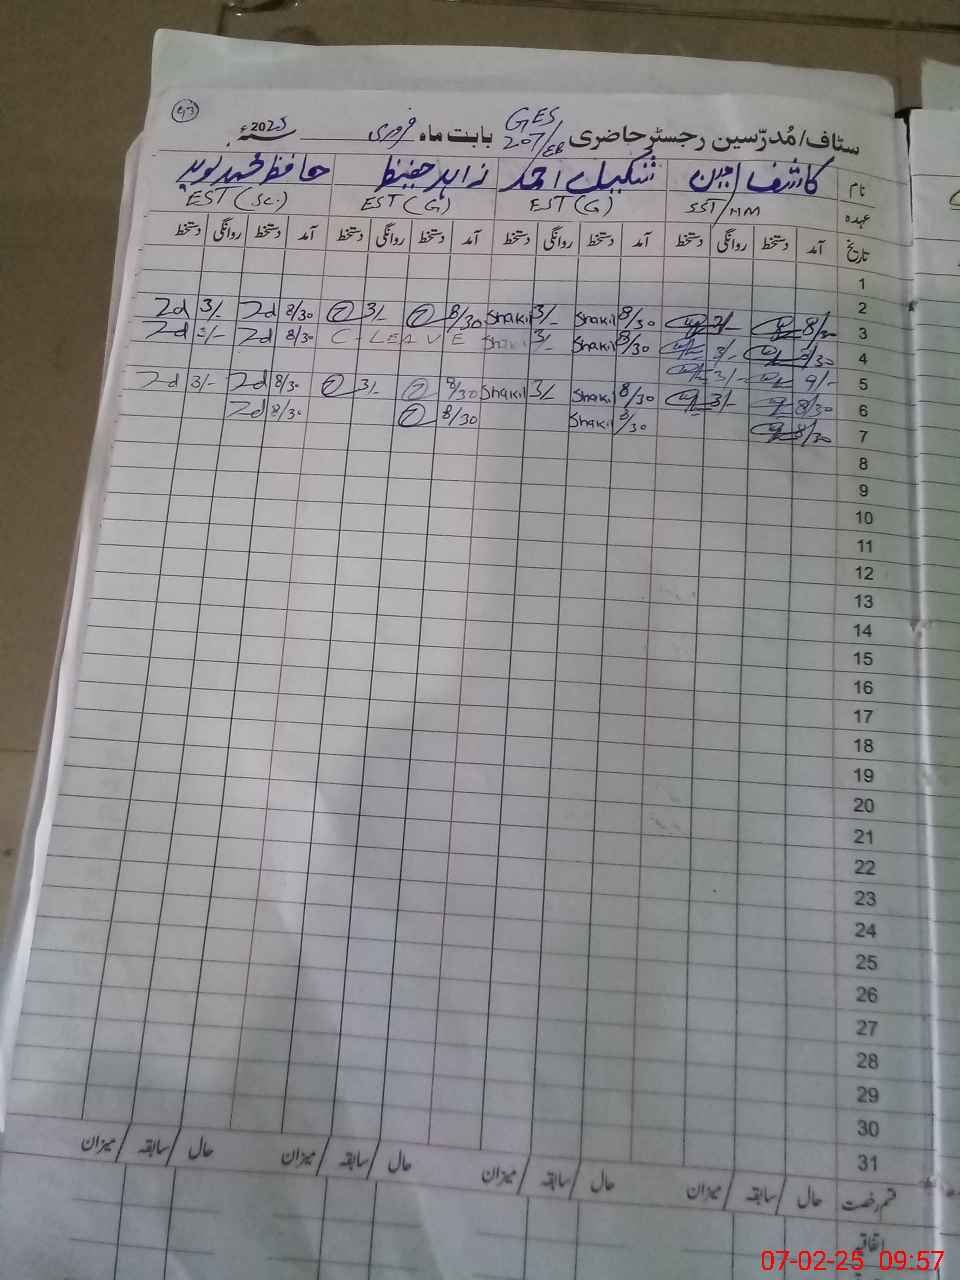 43
سٹاف/مُدرّسین رجسٹر حاضری GES 207/EB بابت ماہ فروری 2025ء
نام کاشف امین شکیل احمد زاہد حفیظ حافظ محمد نوید
عہدہ SST/HM EST(G) EST(G) EST(Sc.)
تاریخ آمد دستخط روانگی دستخط آمد دستخط روانگی دستخط آمد دستخط روانگی دستخط آمد دستخط روانگی دستخط
1
2
3 8/30 3/- 8/30 Shakil 3/- Shakil 8/30 3/- 8/30 3/-
4 8/30 3/- 8/30 Shakil 3/- Shakil C-LEAVE 8/30 3/-
5 9/- 3/-
6 8/30 3/- 8/30 Shakil 3/- Shakil 8/30 3/- 8/30 3/-
7 8/30 8/30 Shakil 8/30 8/30
8
9
10
11
12
13
14
15
16
17
18
19
20
21
22
23
24
25
26
27
28
29
30
31
قسم رخصت حال / سابقہ / میزان حال / سابقہ / میزان حال / سابقہ / میزان حال / سابقہ / میزان
اتفاقیہ
07-02-25 09:57